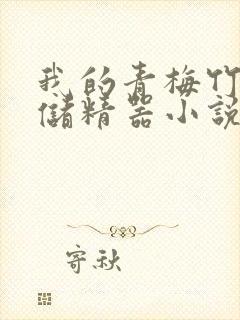 我的青梅竹
儲精器小説
寄秋